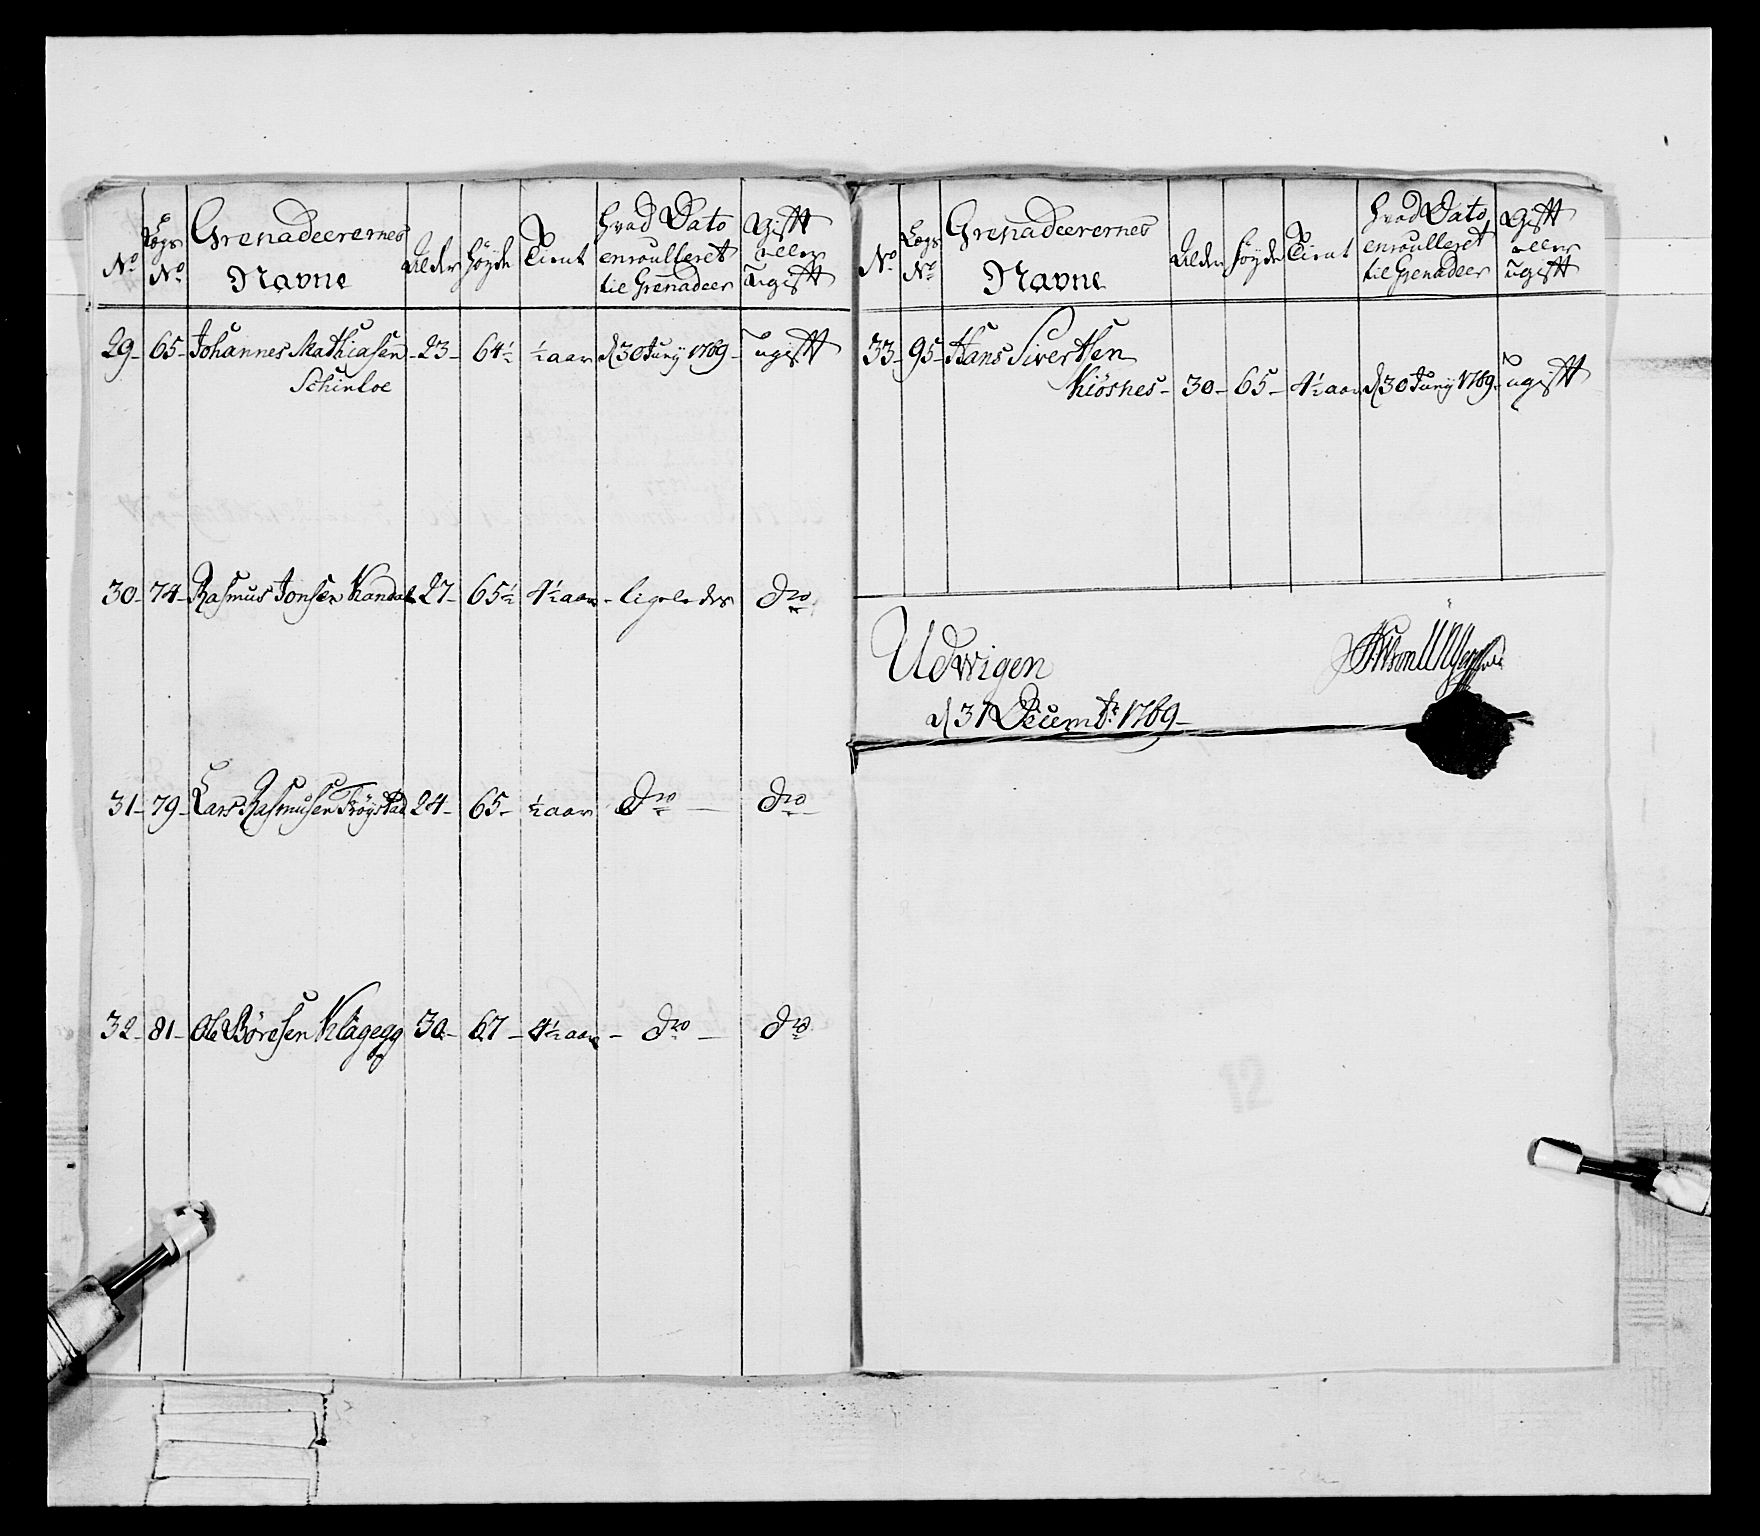 No
Lægs No
Grenadeerernes Navne
Alder
Høyde
Tient
Hvad Dato enroulleret til Grenadeer
Gift eller Ugift
29- 65- Johannes Mathiasen -23- 64½ ½ aar d 30 Juny 1789- ugift
Schinloe
30- 74- Rasmus Jonsen Kandal 27- 65½ 4½ aar - ligeledes Dto
31- 79- Lars Rasmusen Trøystad 24- 65- ½ aar Dto Dto
32- 81- Ole Børesen Klagegg 30- 67- 4½ aar - Dto - Dto
No
Lægs No
Grenadeerernes Navne
Alder
Høyde
Tient
Hvad Dato enroulleret til Grenadeer
Gift eller Ugift
33- 95- Hans Sivertsen
Kiøsnes- 30- 65- 4½ aar d 30 Juny 1789- ugift
Udvigen
d 31 Decembr: 1789-
12